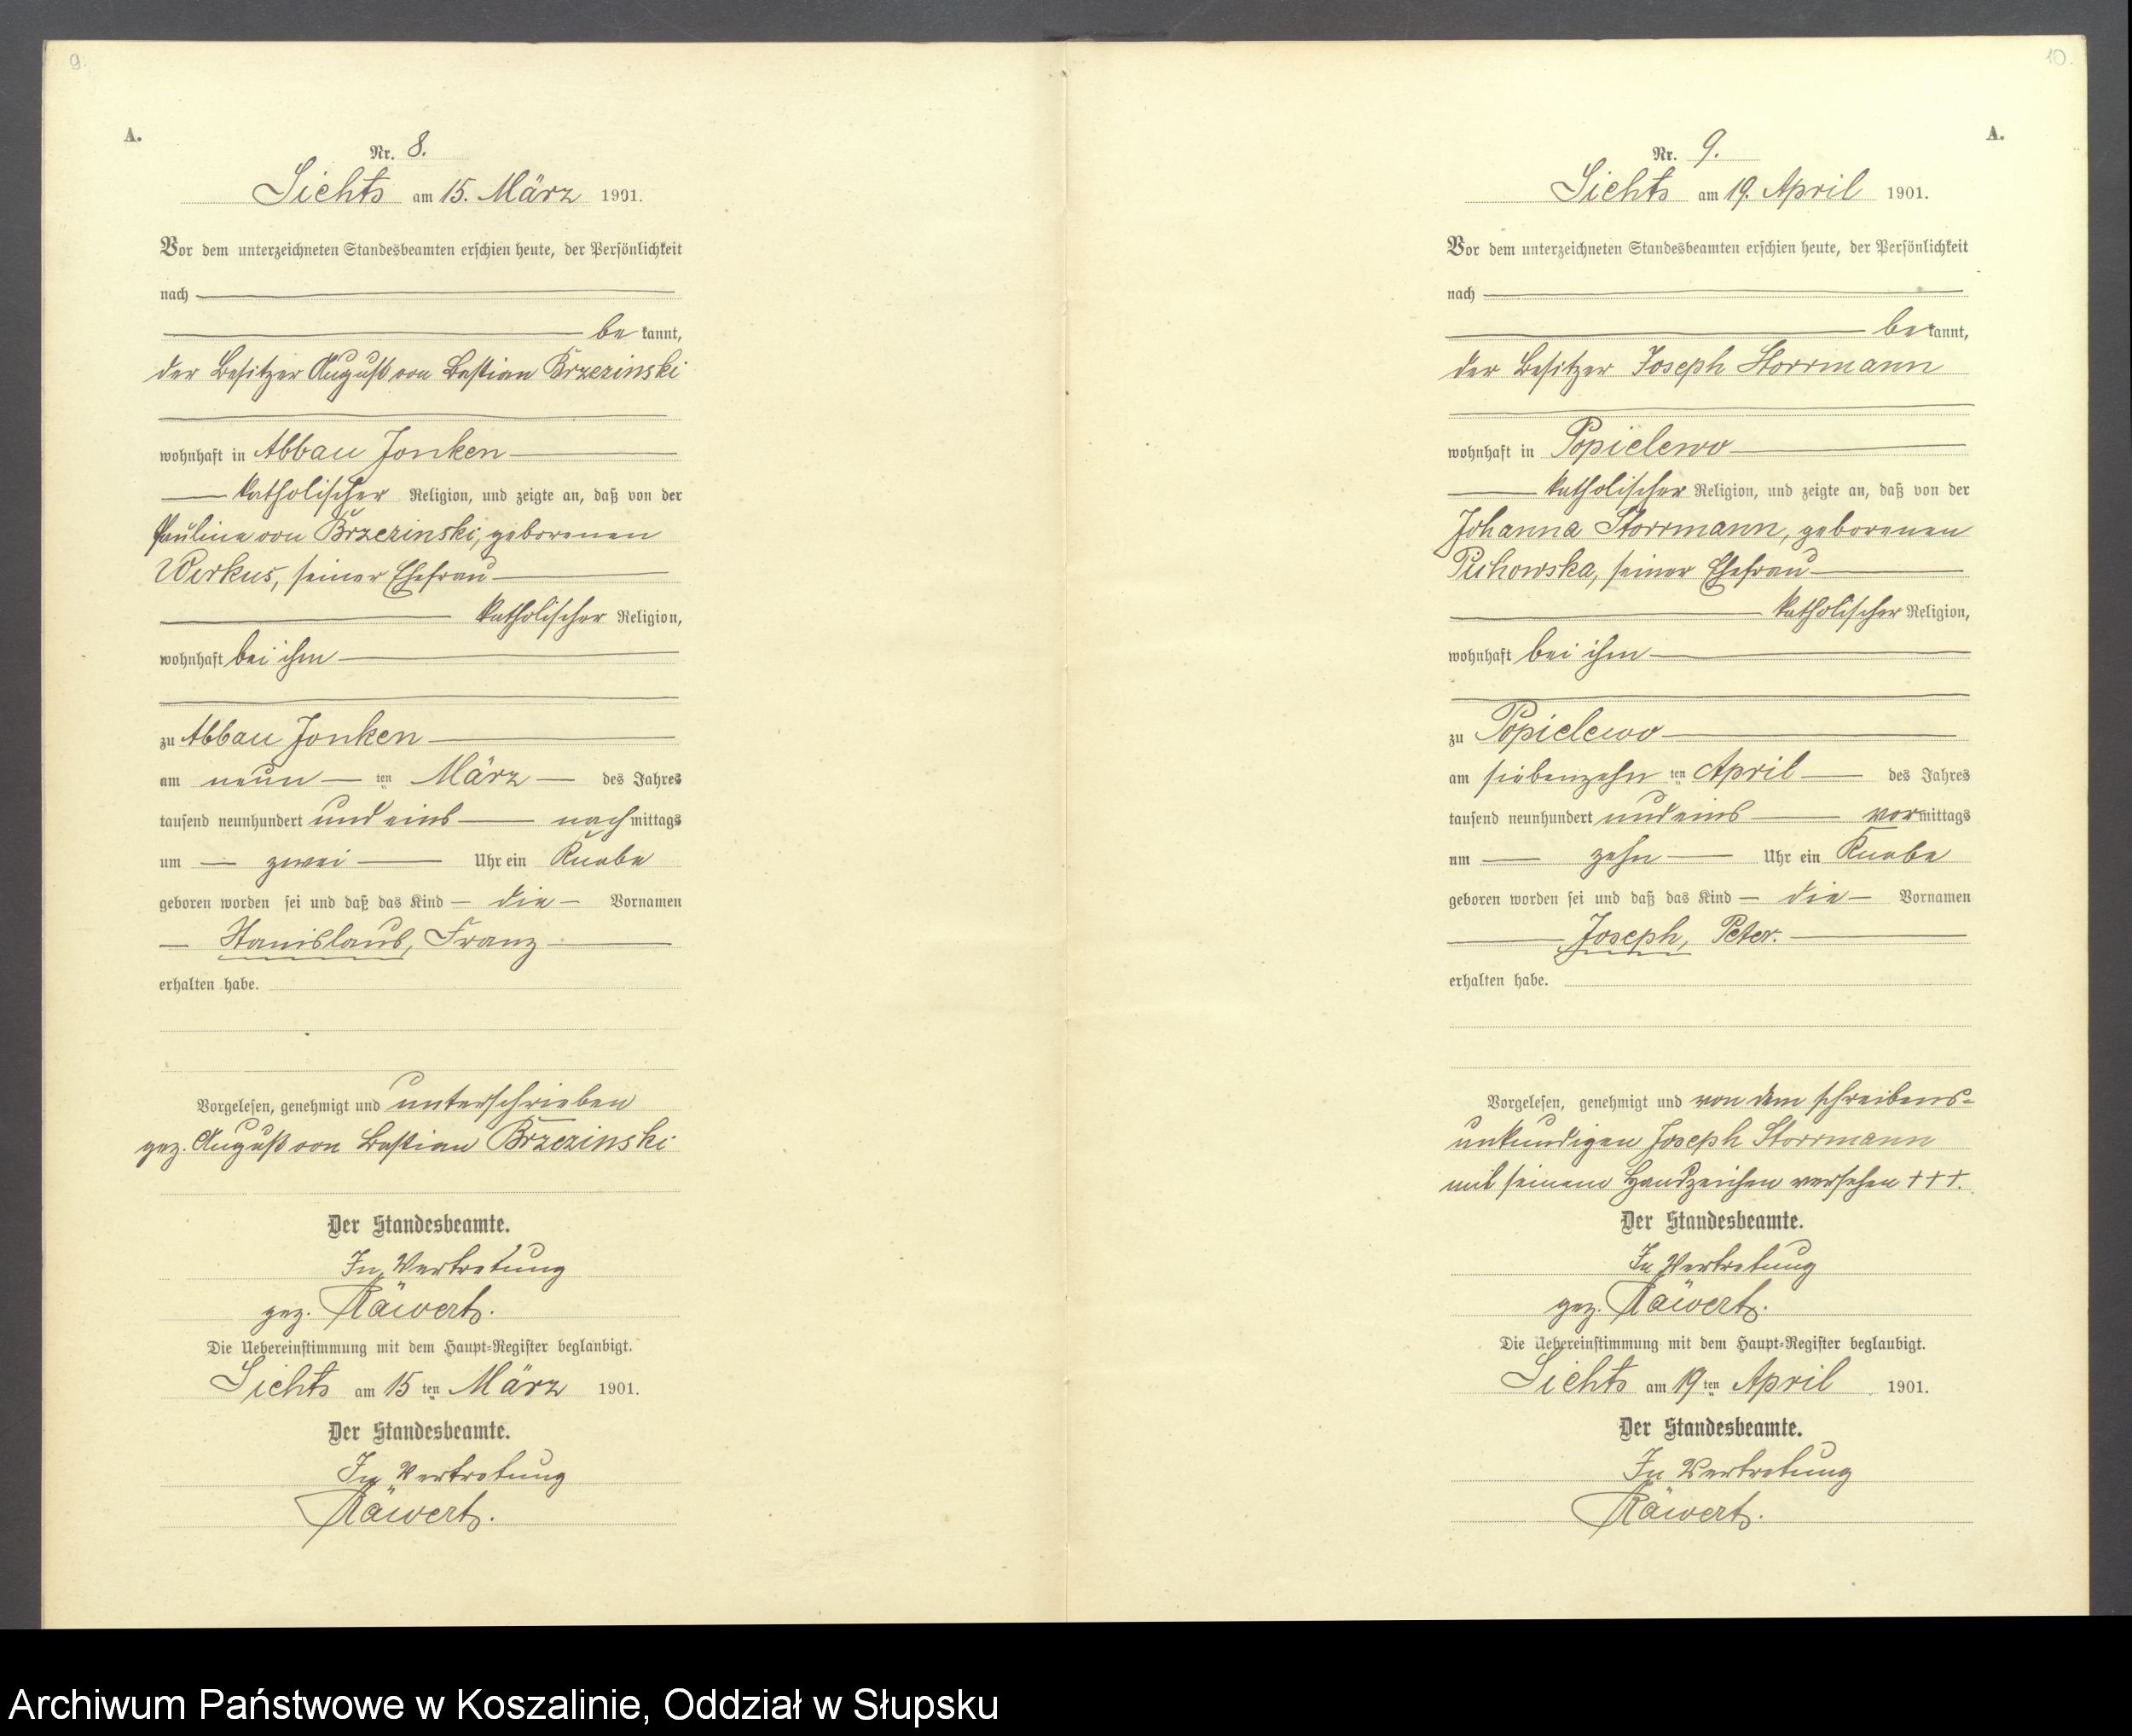 9.
A.
Nr. 8.
Lichts am 15. März 1901.
Vor dem unterzeichneten Standesbeamten erschien heute, der Persönlichkeit
nach
be kannt,
der Besitzer August von Bastian Brzezinski
wohnhaft in Abbau Jonken
katholischer Religion, und zeigte an, daß von der
Pauline von Brzezinski, geborenen
Wirkus, seiner Ehefrau
katholischer Religion,
wohnhaft bei ihm
zu Abbau Jonken
am neun ten März des Jahres
tausend neunhundert und eins nachmittags
um zwei Uhr ein Knabe
geboren worden sei und daß das Kind die Vornamen
Stanislaus, Franz
erhalten habe.
Vorgelesen, genehmigt und unterschrieben
gez. August von Bastian Brzezinski
Der Standesbeamte.
In Vertretung
gez. Räwert.
Die Uebereinstimmung mit dem Haupt=Register beglaubigt.
Lichts am 15 ten März 1901.
Der Standesbeamte.
In Vertretung
Räwert.
10.
A.
Nr. 9.
Lichts am 19. April 1901.
Vor dem unterzeichneten Standesbeamten erschien heute, der Persönlichkeit
nach
be kannt,
der Besitzer Joseph Storrmann
wohnhaft in Popielewo
katholischer Religion, und zeigte an, daß von der
Johanna Storrmann, geborenen
Puhowska, seiner Ehefrau
katholischer Religion,
wohnhaft bei ihm
zu Popielewo
am siebenzehn ten April des Jahres
tausend neunhundert und eins vormittags
um zehn Uhr ein Knabe
geboren worden sei und daß das Kind die Vornamen
Joseph, Peter.
erhalten habe.
Vorgelesen, genehmigt und von dem schreibens=
unkundigen Joseph Storrmann
mit seinem Handzeichen versehen +++.
Der Standesbeamte.
In Vertretung
gez. Räwert.
Die Uebereinstimmung mit dem Haupt=Register beglaubigt.
Lichts am 19 ten April 1901.
Der Standesbeamte.
In Vertretung
Räwert.
Archiwum Państwowe w Koszalinie, Oddział w Słupsku